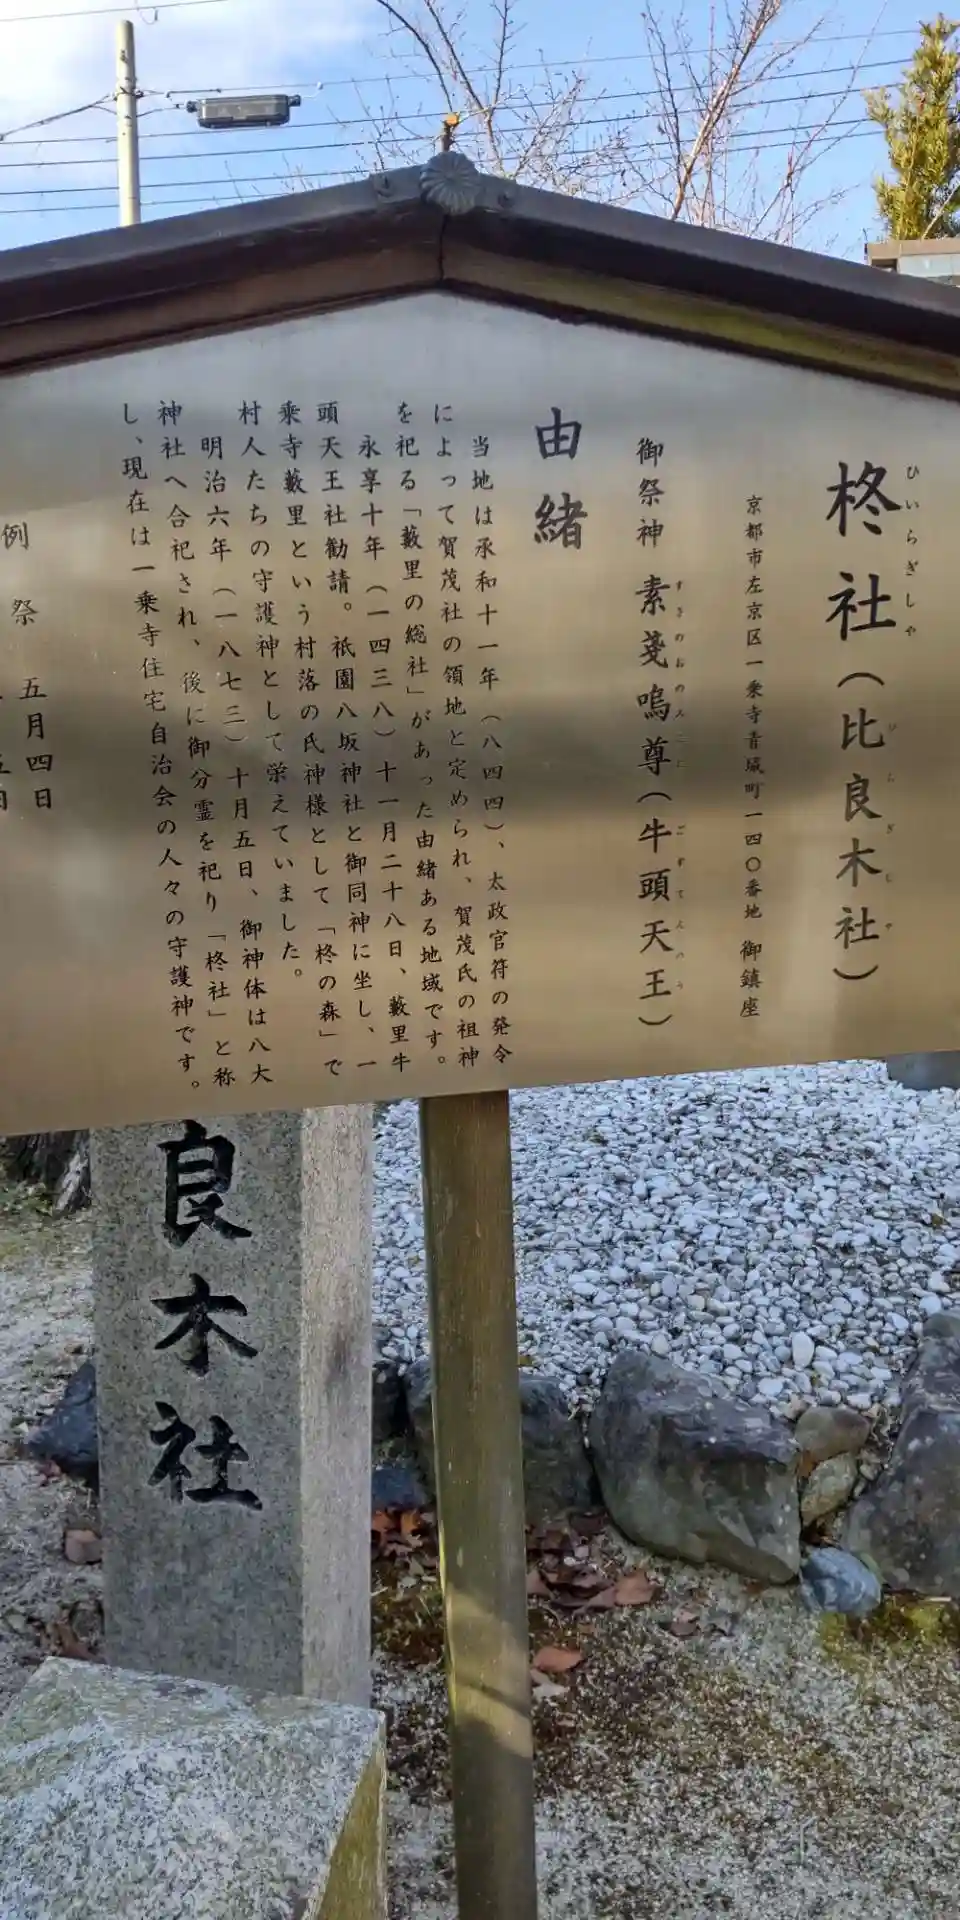 柊社(比良木社)
ひいらぎしゃ
ひらぎしゃ
京都市左京区一乗寺青城町一四〇番地 御鎮座
御祭神 素戔嗚尊(牛頭天王)
すさのおのみこと ごずてんのう
由緒
当地は承和十一年(八四四)、太政官符の発令
によって賀茂社の領地と定められ、賀茂氏の祖神
を祀る「藪里の総社」があった由緒ある地域です。
永享十年(一四三八)十一月二十八日、藪里牛
頭天王社勧請。祇園八坂神社と御同神に坐し、一
乗寺藪里という村落の氏神様として「柊の森」で
村人たちの守護神として栄えていました。
明治六年(一八七三)十月五日、御神体は八大
神社へ合祀され、後に御分霊を祀り「柊社」と称
し、現在は一乗寺住宅自治会の人々の守護神です。
例祭 五月四日
良木社